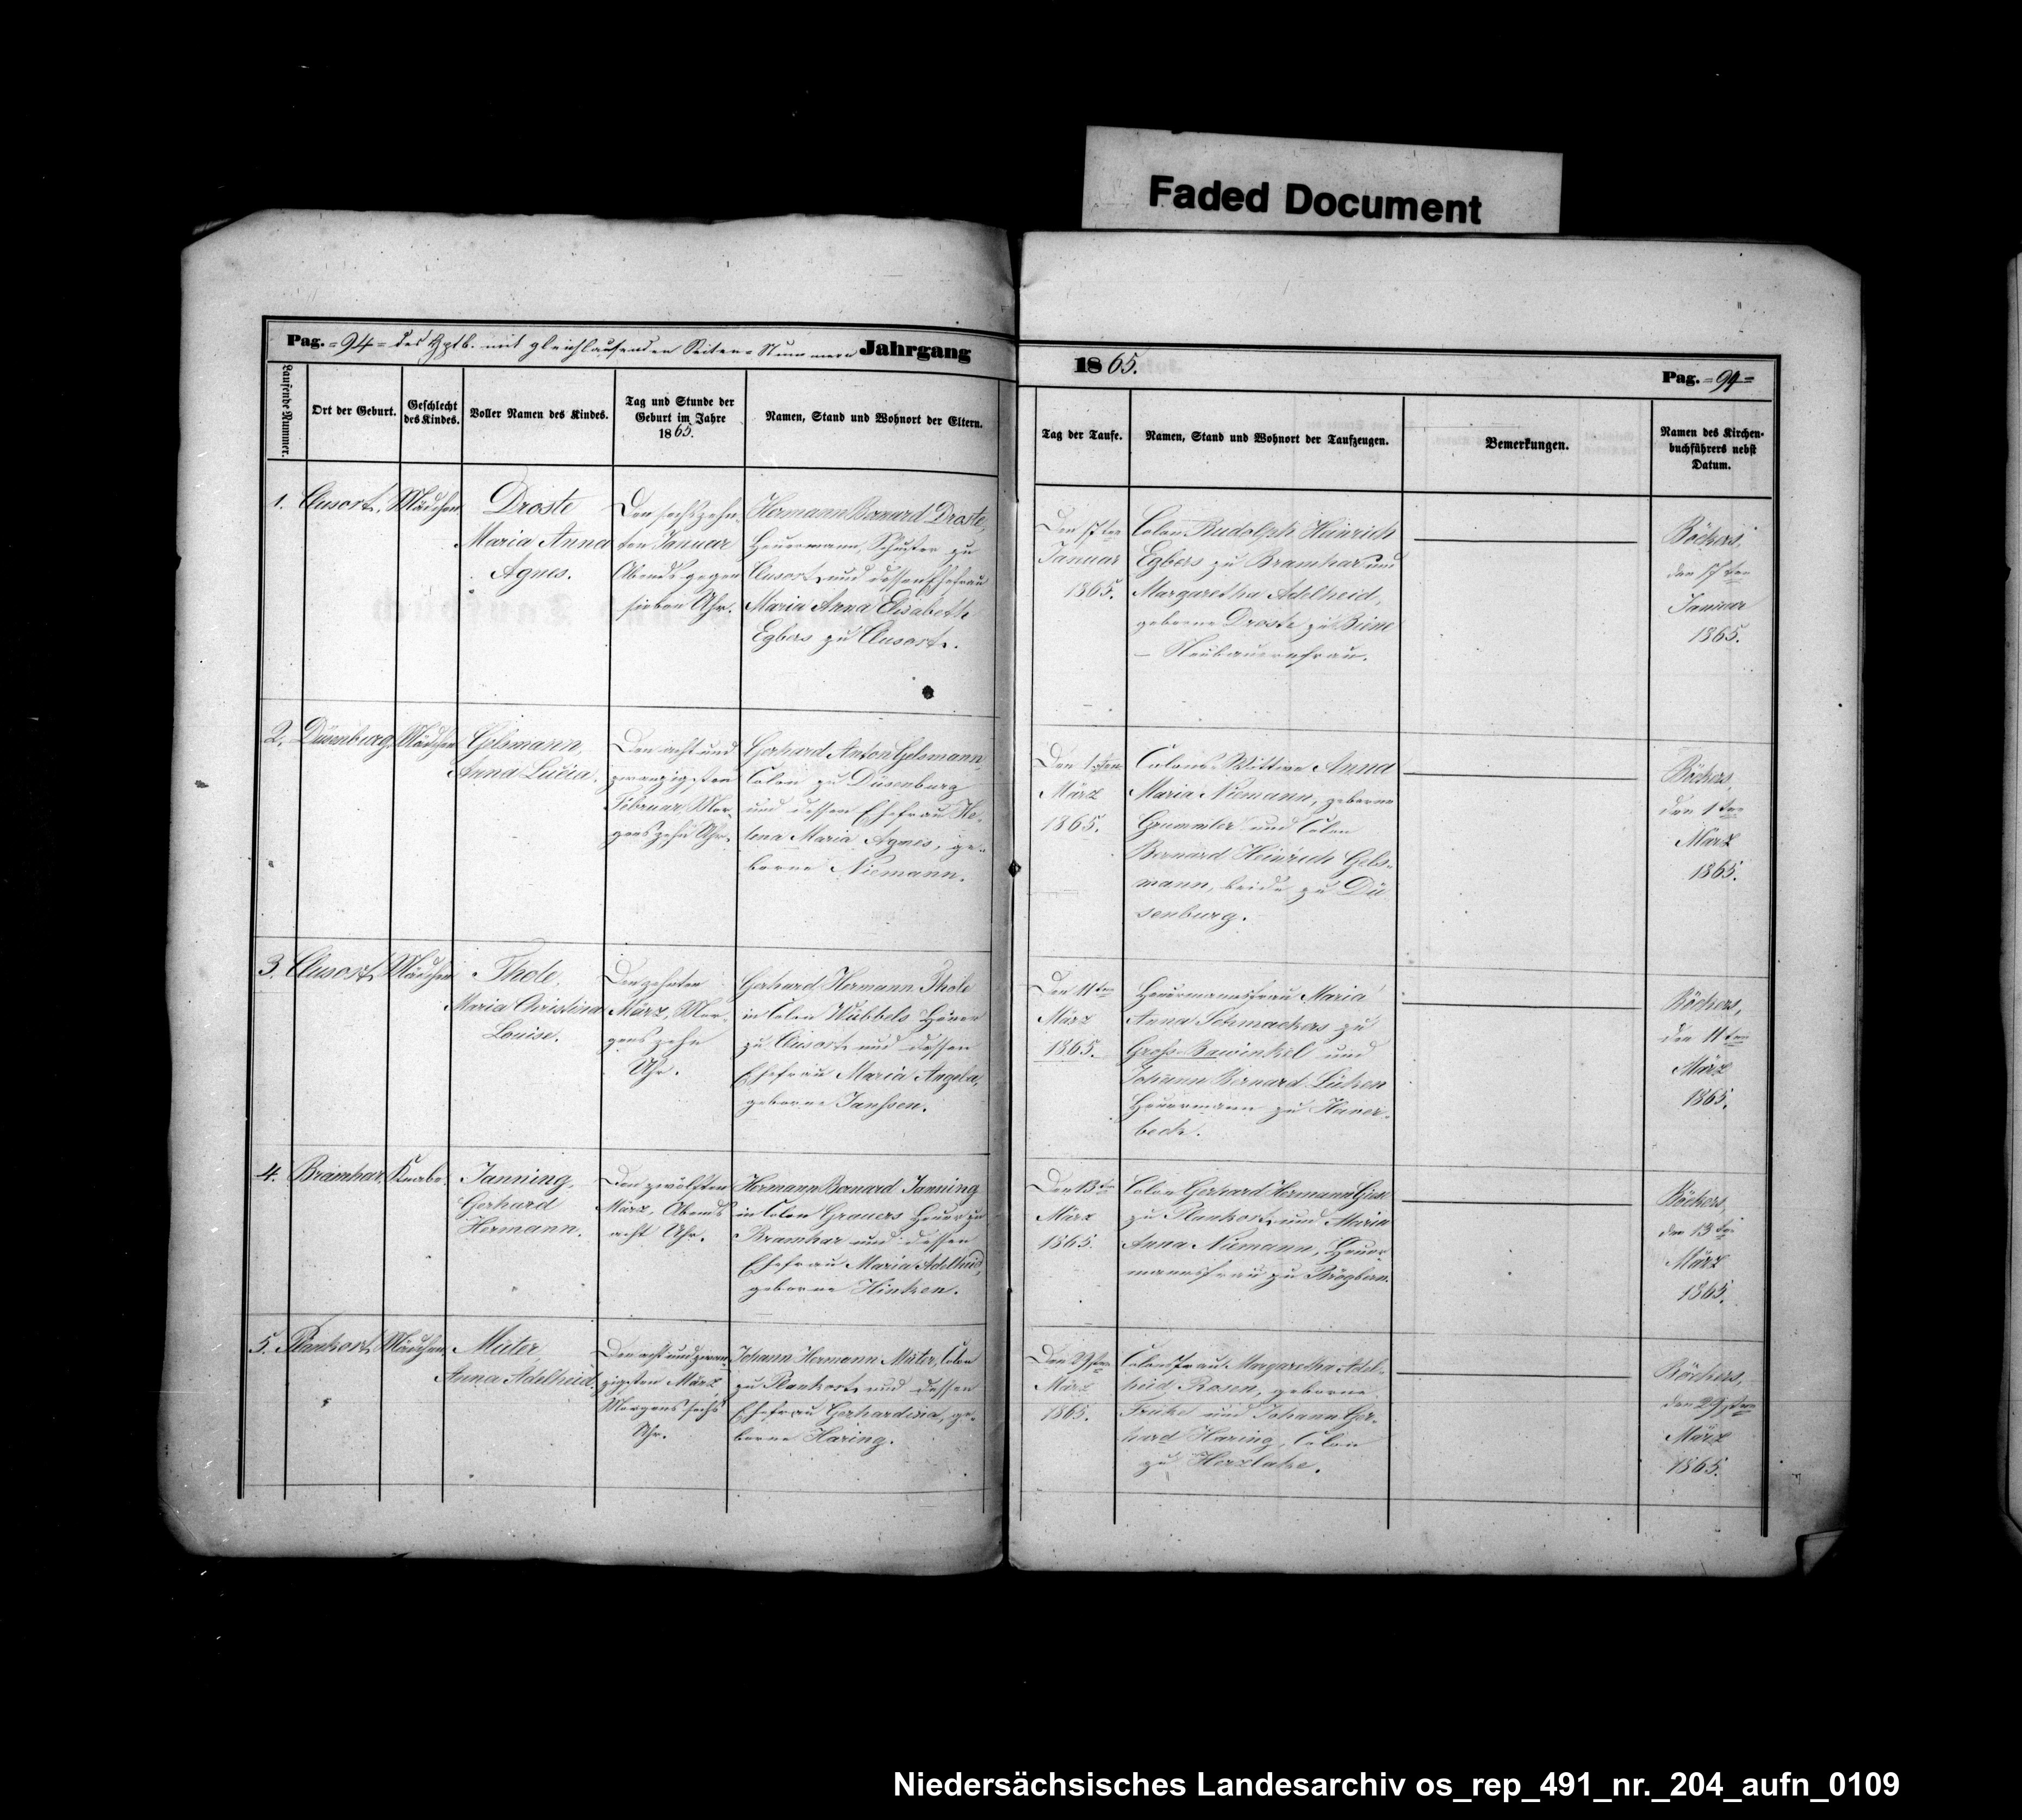 Faded Document
Pag. =94= des Hptb. mit gleichlaufenden Seiten-Nummern Jahrgang
1865.
Pag. =94=
Laufende Nummer.
Ort der Geburt.
Geschlecht
des Kindes.
Voller Namen des Kindes.
Tag und Stunde der
Geburt im Jahre
1865.
Namen, Stand und Wohnort der Eltern.
Tag der Taufe.
Namen, Stand und Wohnort der Taufzeugen.
Bemerkungen.
Namen des Kirchen-
buchführers nebst
Datum.
1.
Clusort.
Mädchen
Droste
Maria Anna
Agnes.
Den sechszehn-
ten Januar
Abends gegen
sieben Uhr.
Hermann Bernard Droste,
Heuermann, Schuster zu
Clusort, und dessen Ehefrau
Maria Anna Elisabeth
Egbers zu Clusort.
Den 17ten
Januar
1865.
Colon Rudolph Heinrich
Egbers zu Bramhar und
Margaretha Adelheid,
geborne Droste zu Biene
– Neubauernfrau.
Böckers,
den 17ten
Januar
1865.
2.
Düsenburg.
Mädchen
Gelsmann,
Anna Lucia.
Den acht und
zwanzigsten
Februar, Mor-
gens zehn Uhr.
Gerhard Anton Gelsmann,
Colon zu Düsenburg
und dessen Ehefrau He-
lena Maria Agnes, ge-
borne Niemann.
Den 1sten
März
1865.
Colons-Wittwe Anna
Maria Niemann, geborne
und Colon
Bernard Heinrich Gels-
mann, beide zu Dü-
senburg.
Böckers,
den 1ten
März
1865.
3.
Clusort,
Mädchen
Thole,
Maria Christina
Louise.
Den zehnten
März, Mor-
gens zehn
Uhr.
Gerhard Hermann Thole
in Colon Wübbels Heuer
zu Clusort und dessen
Ehefrau Maria Angela,
geborne Janssen.
Den 11ten
März
1865.
Heuermannsfrau Maria
Anna Schmackers zu
Gross-Bawinkel und
Johann Bernard Lüken
Heuermann zu Haver-
beck.
Böckers,
den 11ten
März
1865.
4.
Bramhar.
Knabe.
Janning,
Gerhard
Hermann.
Den zwölften
März, Abends
acht Uhr.
Hermann Bernard Janning
in Colon Grauers Heuer zu
Bramhar und dessen
Ehefrau Maria Adelheid,
geborne Hinken.
Den 13ten
März
1865.
Colon Gerhard Hermann Giese
zu Plankort, und Maria
Anna Niemann, Heuer-
mannsfrau zu Brögbern.
Böckers,
den 13ten
März
1865.
5.
Plankort,
Mädchen.
Müter,
Anna Adelheid.
Den acht und zwan-
zigsten März,
Morgens sechs
Uhr.
Johann Hermann Müter, Colon
zu Plankort, und dessen
Ehefrau Gerhardina, ge-
borne Haring.
Den 29sten
März
1865.
Colonsfrau Margaretha Adel-
heid Rosen, geborne
Fricke und Johann Ger-
hard Haring, Colon
zu Herzlake.
Böckers,
den 29sten
März
1865.
Niedersächsisches Landesarchiv os_rep_491_nr._204_aufn_0109